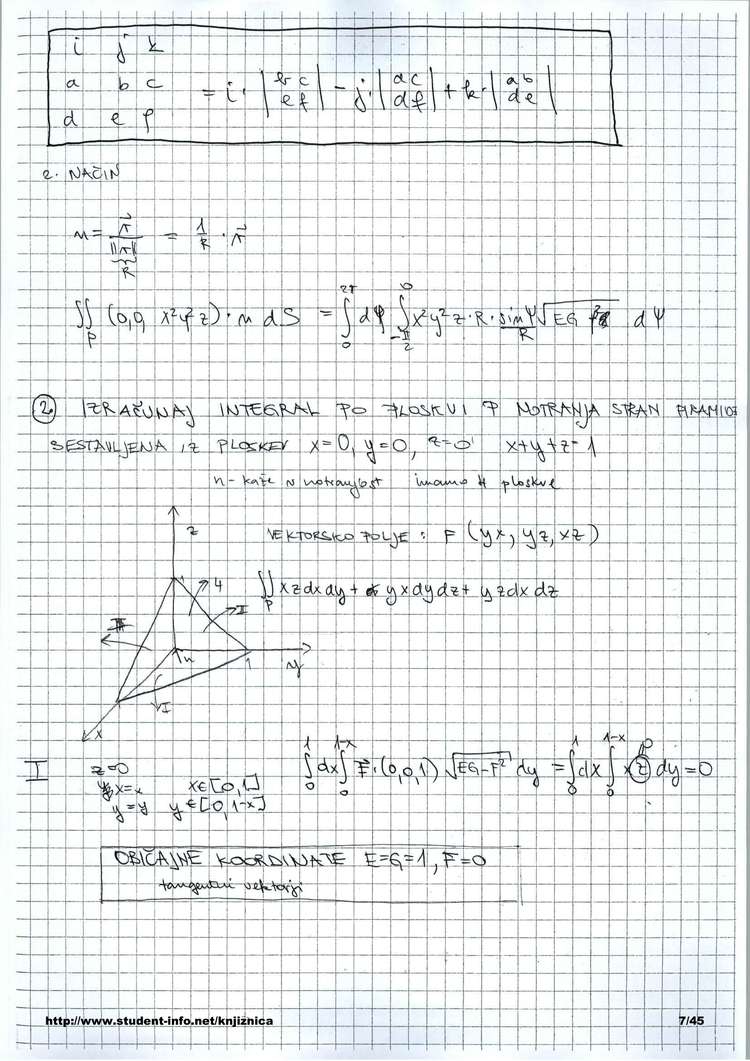 i j k
a b c = i · | b c e f | - j · | a c d f | + k · | a b d e |
d e f
2. NAČIN
n = r⃗ / ||r|| = 1/R · r⃗
R
∬_P (0,0, x²y²z) · n dS = ∫_0^{2π} dφ ∫_{-π/2}^0 x²y²z · R · sinψ/R √EG F² dψ
2. IZRAČUNAJ INTEGRAL PO PLOSKVI P NOTRANJA STRAN PIRAMIDE
SESTAVLJENA IZ PLOSKEV x=0, y=0, z=0 x+y+z=1
n - kaže v notranjost imamo 4 ploskve
VEKTORSKO POLJE: F (yx, yz, xz)
∬_P xz dx dy + yx dy dz + yz dx dz
z
4
II
n
1
y
I
x
I z=0
x=x x∈[0,1]
y=y y∈[0,1-x]
∫_0^1 dx ∫_0^{1-x} F⃗ · (0,0,1) √EG-F² dy = ∫_0^1 dx ∫_0^{1-x} x z dy = 0
OBIČAJNE KOORDINATE E=G=1, F=0
tangentni vektorji
http://www.student-info.net/knjiznica 7/45